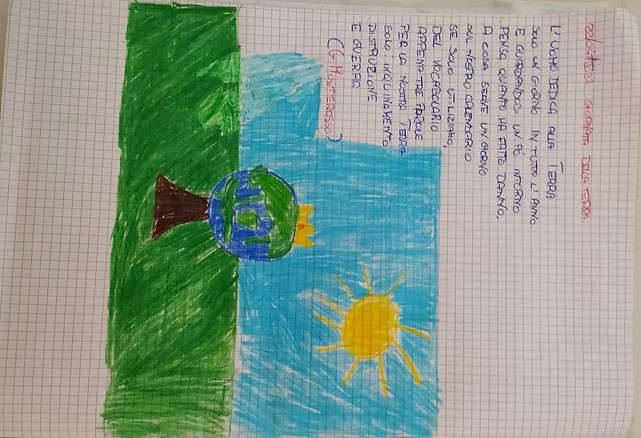 GIORNATA DELLA TERRA
L'UOMO DEDICA ALLA TERRA
SOLO UN GIORNO IN TUTTO L'ANNO
E GUARDANDOSI UN PÓ INTORNO
PENSO QUANTO HA FATTO DANNO.
A COSA SERVE UN GIORNO
SUL NOSTRO CALENDARIO
SE SOLO UTILIZIAMO,
DEL VOCABOLARIO
APPENA TRE PAROLE
PER LA NOSTRA TERRA
SOLO INQUINAMENTO
DISTRUZIONE
E GUERRA
(G. MONTERESSO)